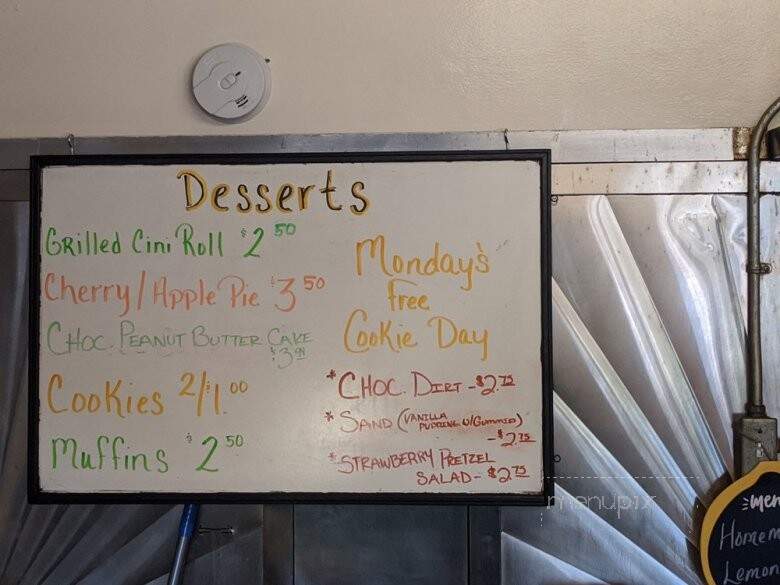 Desserts
Grilled Cini Roll $2.50
Cherry/Apple Pie $3.50
Choc. Peanut Butter Cake
$3.99
Cookies 2/$1.00
Muffins $2.50
Monday's
free
Cookie Day
*Choc. Dirt - $2.75
*Sand (Vanilla
Pudding w/Gummies)
- $2.75
*Strawberry Pretzel
Salad - $2.75
menupix
Homem
Lemon